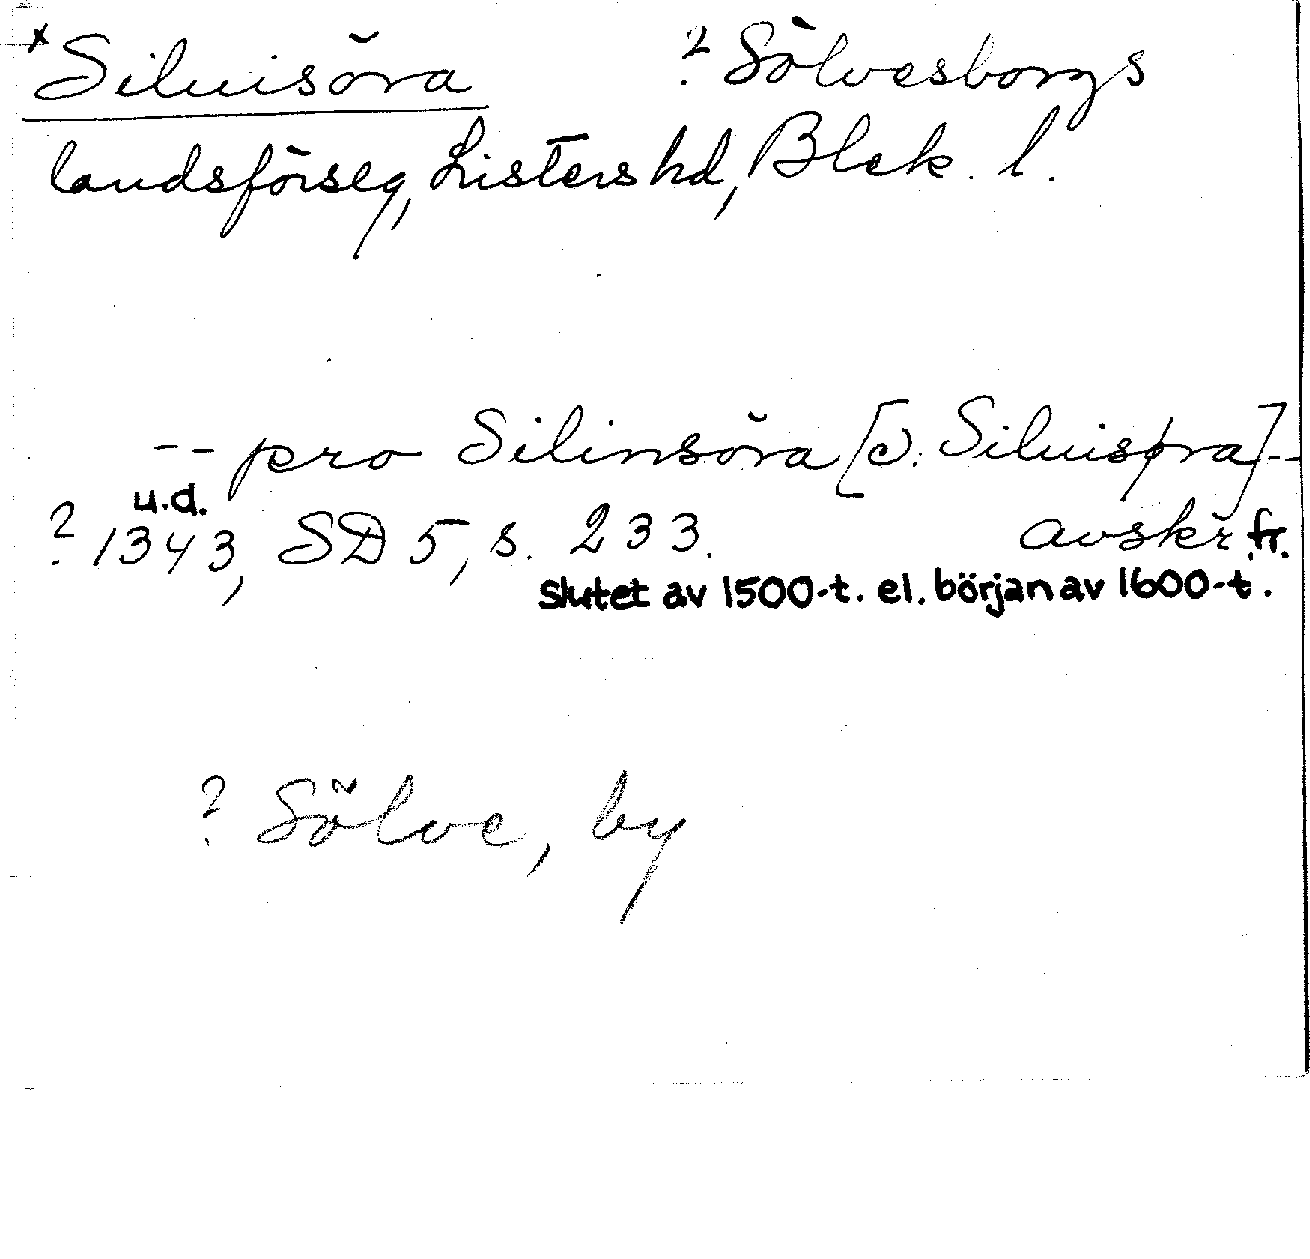 x Siluisöra ? Sölvesborgs
landsförslg, Listers hd, Blek. l.
-- pro Silinsöra [ɔ: Siluisøra] --
u.d.
? 1343, SD 5, s. 233. avskr. fr.
slutet av 1500-t. el. början av 1600-t.
? Sölve, by